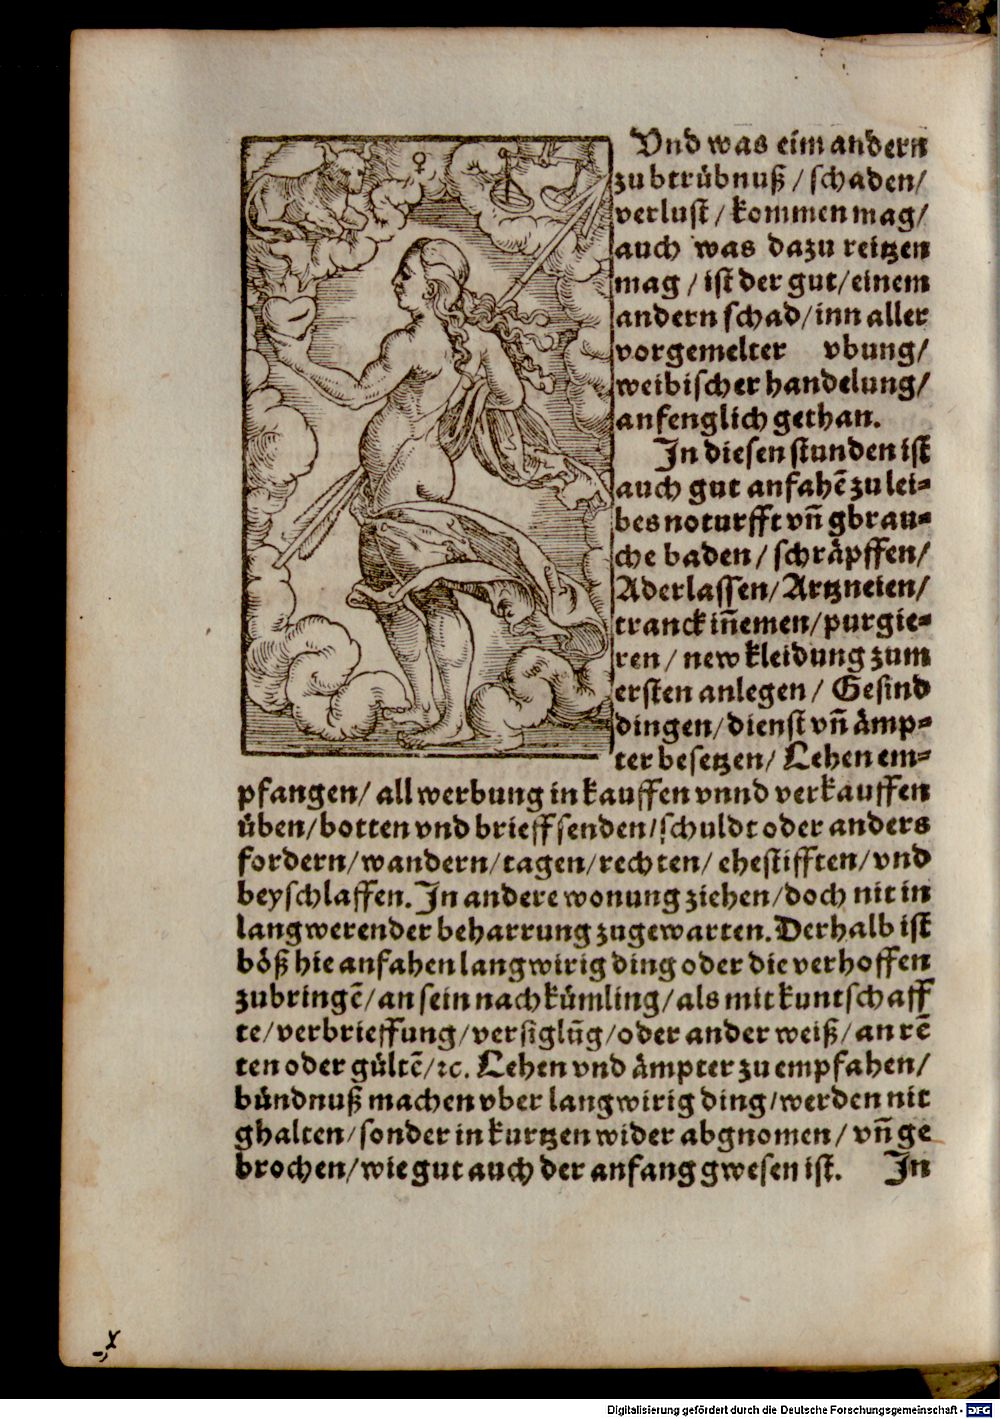 Vnd was eim andern
zu btrübnuß / schaden/
verlust / kommen mag/
auch was dazu reitzen
mag / ist der gut/einem
andern schad/inn aller
vorgemelter vbung/
weibischer handelung/
anfenglich gethan.
In diesen stunden ist
auch gut anfahē zu lei⸗
bes noturfft vñ gbrau⸗
che baden / schräpffen/
Aderlassen/Artzneien/
tranck iñemen/purgie⸗
ren / new kleidung zum
ersten anlegen / Gesind
dingen/dienst vñ ämp⸗
ter besetzen/ Lehen em⸗
pfangen/ all werbung in kauffen vnnd verkauffen
üben/botten vnd brieff senden/schuldt oder anders
fordern/wandern/tagen/rechten/ ehestifften/vnd
beyschlaffen. In andere wonung ziehen/doch nit in
langwerender beharrung zugewarten. Derhalb ist
böß hie anfahen langwirig ding oder die verhoffen
zubringē/an sein nachkümling/als mit kuntschaff
te/verbrieffung/versiglūg/oder ander weiß/an rē
ten oder gültē/ꝛc. Lehen vnd ämpter zu empfahen/
bündnuß machen vber langwirig ding/werden nit
ghalten/sonder in kurtzen wider abgnomen/ vñ ge
brochen/wie gut auch der anfang gwesen ist. In
Digitalisierung gefördert durch die Deutsche Forschungsgemeinschaft - DFG